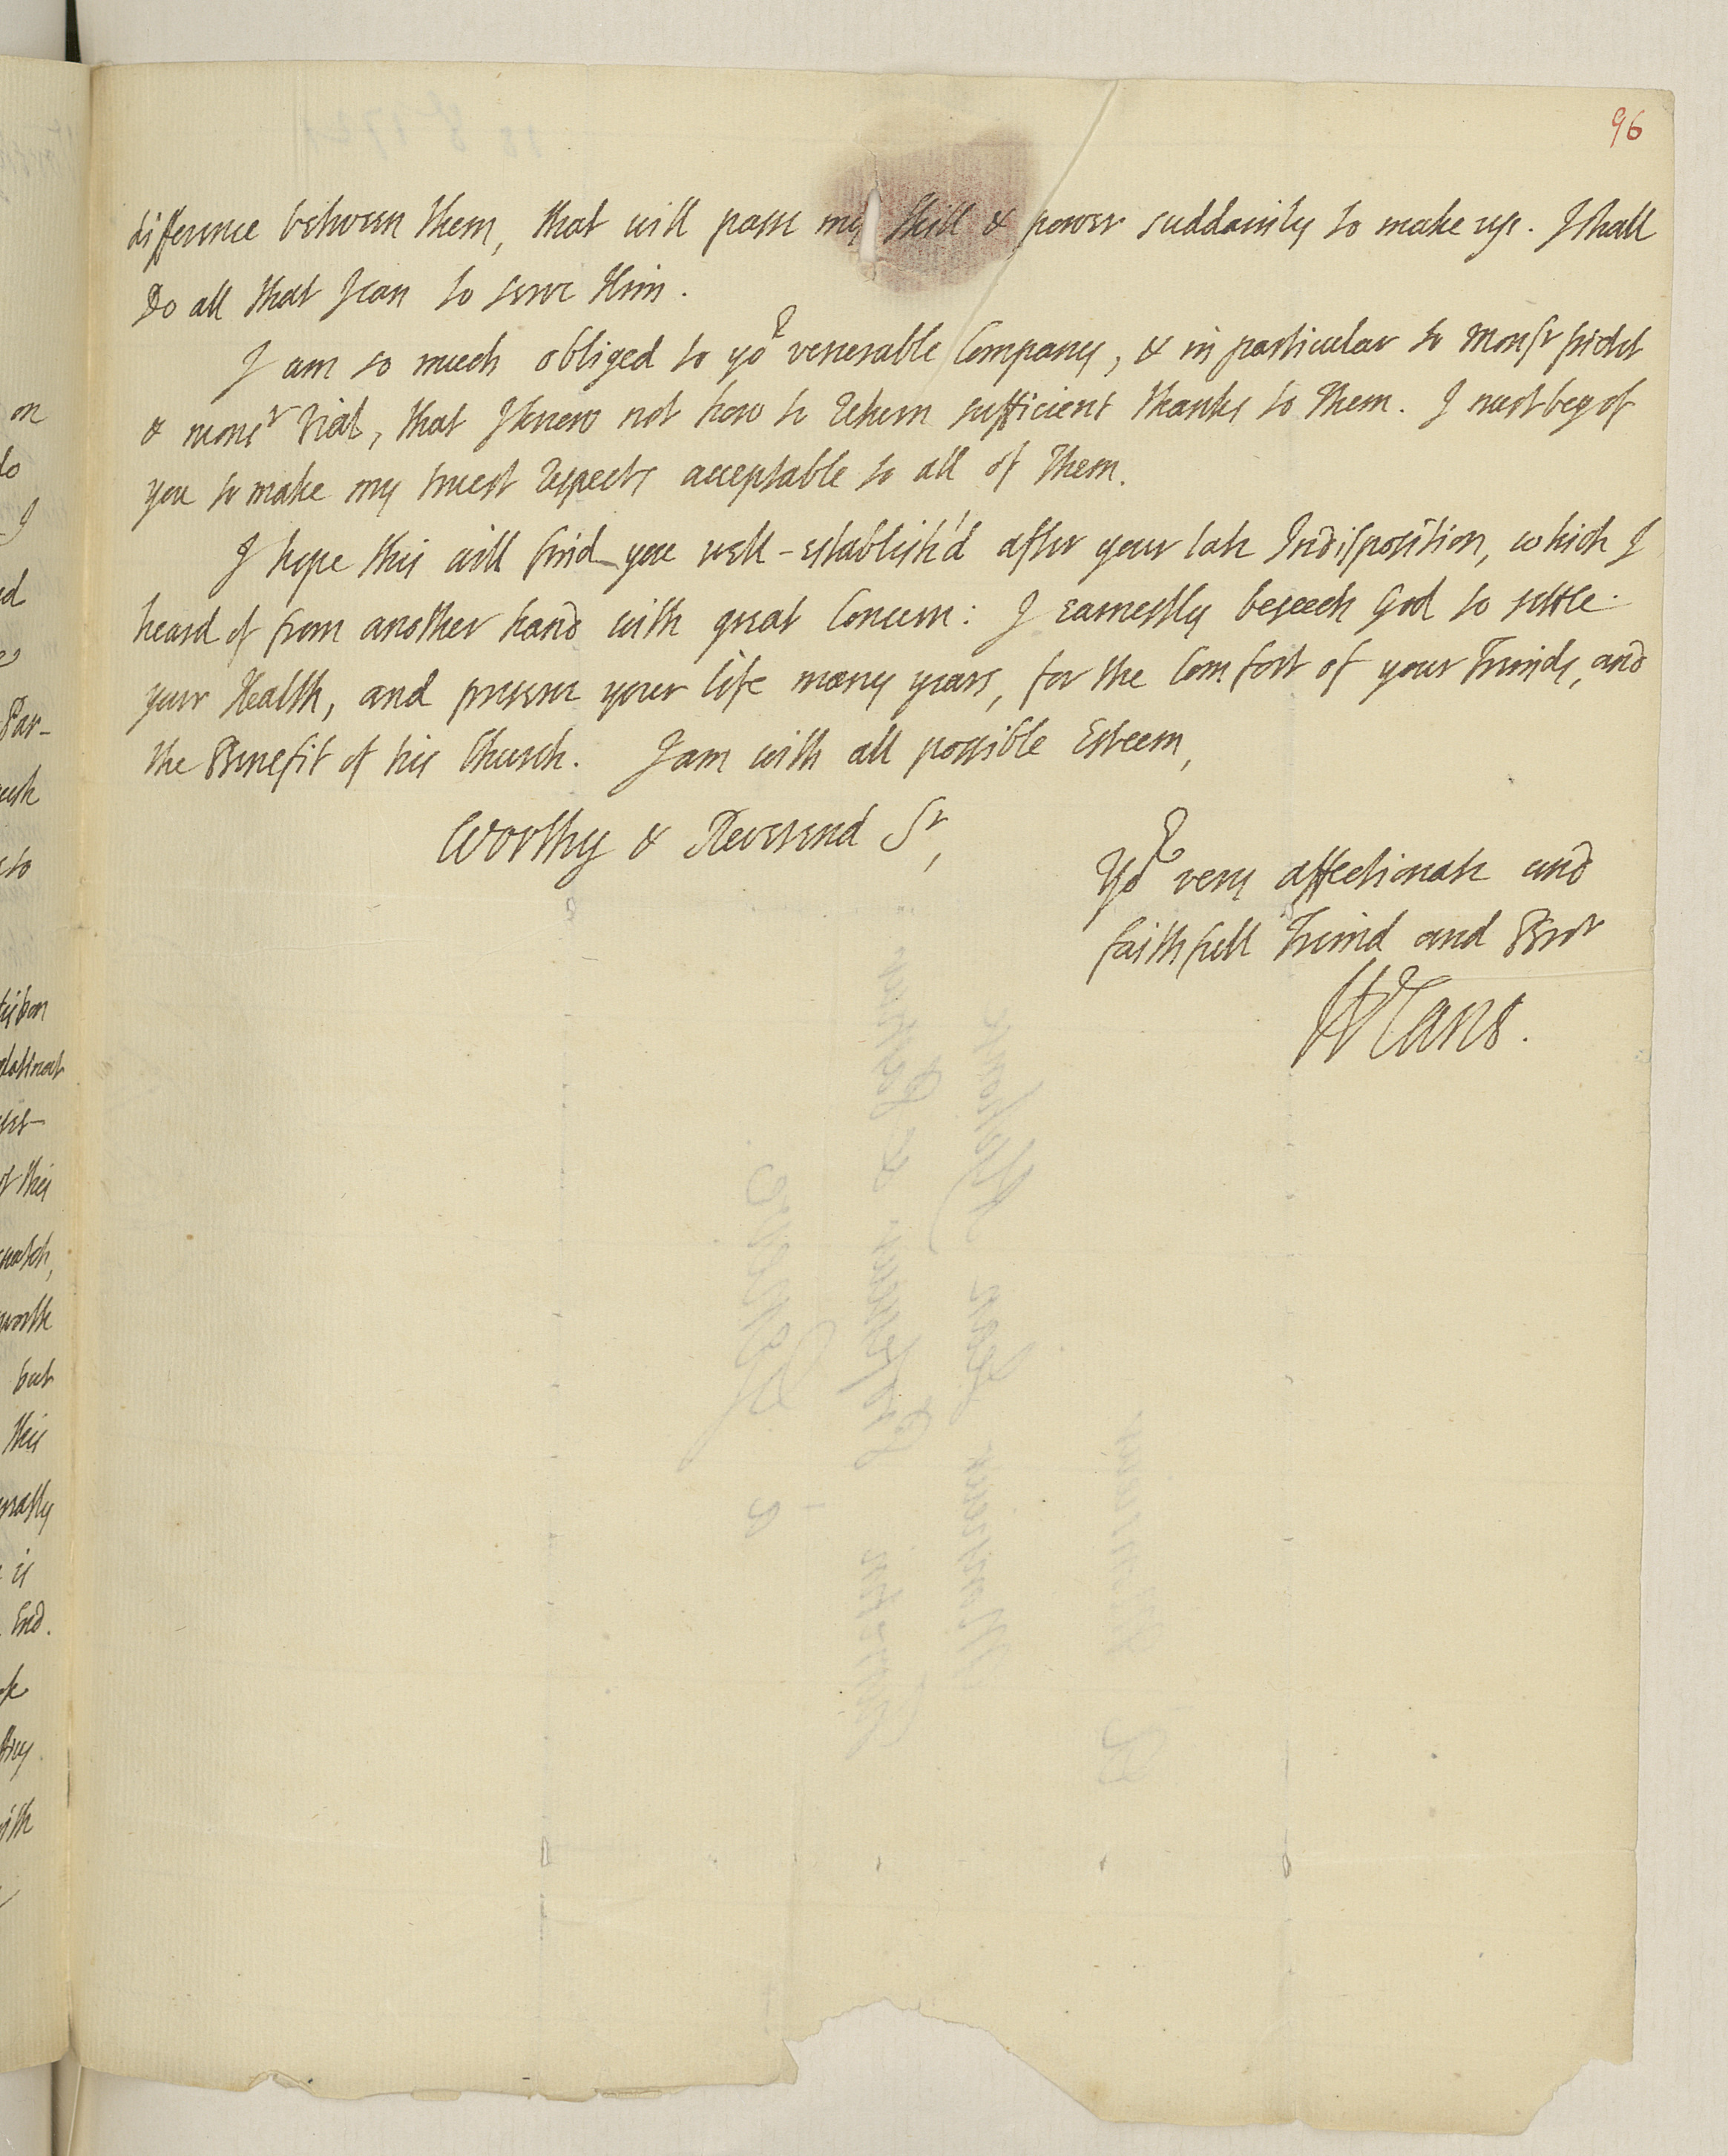 96
difference between them, that will passe my skill & power suddainly to make up. I shall
Do all that I can to serve Him.
I am so much obliged to yor venerable Company, & in particular to Monsr pictet
& monsr Vial, that I know not how to Return sufficient thanks to Them. I must beg of
you to make my truest Respects acceptable to all of Them.
I hope this will find you well-establish'd after your late Indisposition, which I
heard of from another hand with great Concern: I earnestly beseech God to settle
your Health, and preserve your life many years, for the Comfort of your Friends, and
the Benefit of his Church. I am with all possible Esteem,
Worthy & Reverend Sr,
Yor very affectionate and
faithfull Friend and Bror
W Cant.
on
do
I
Par-
of this
worth
but
this
is
End.